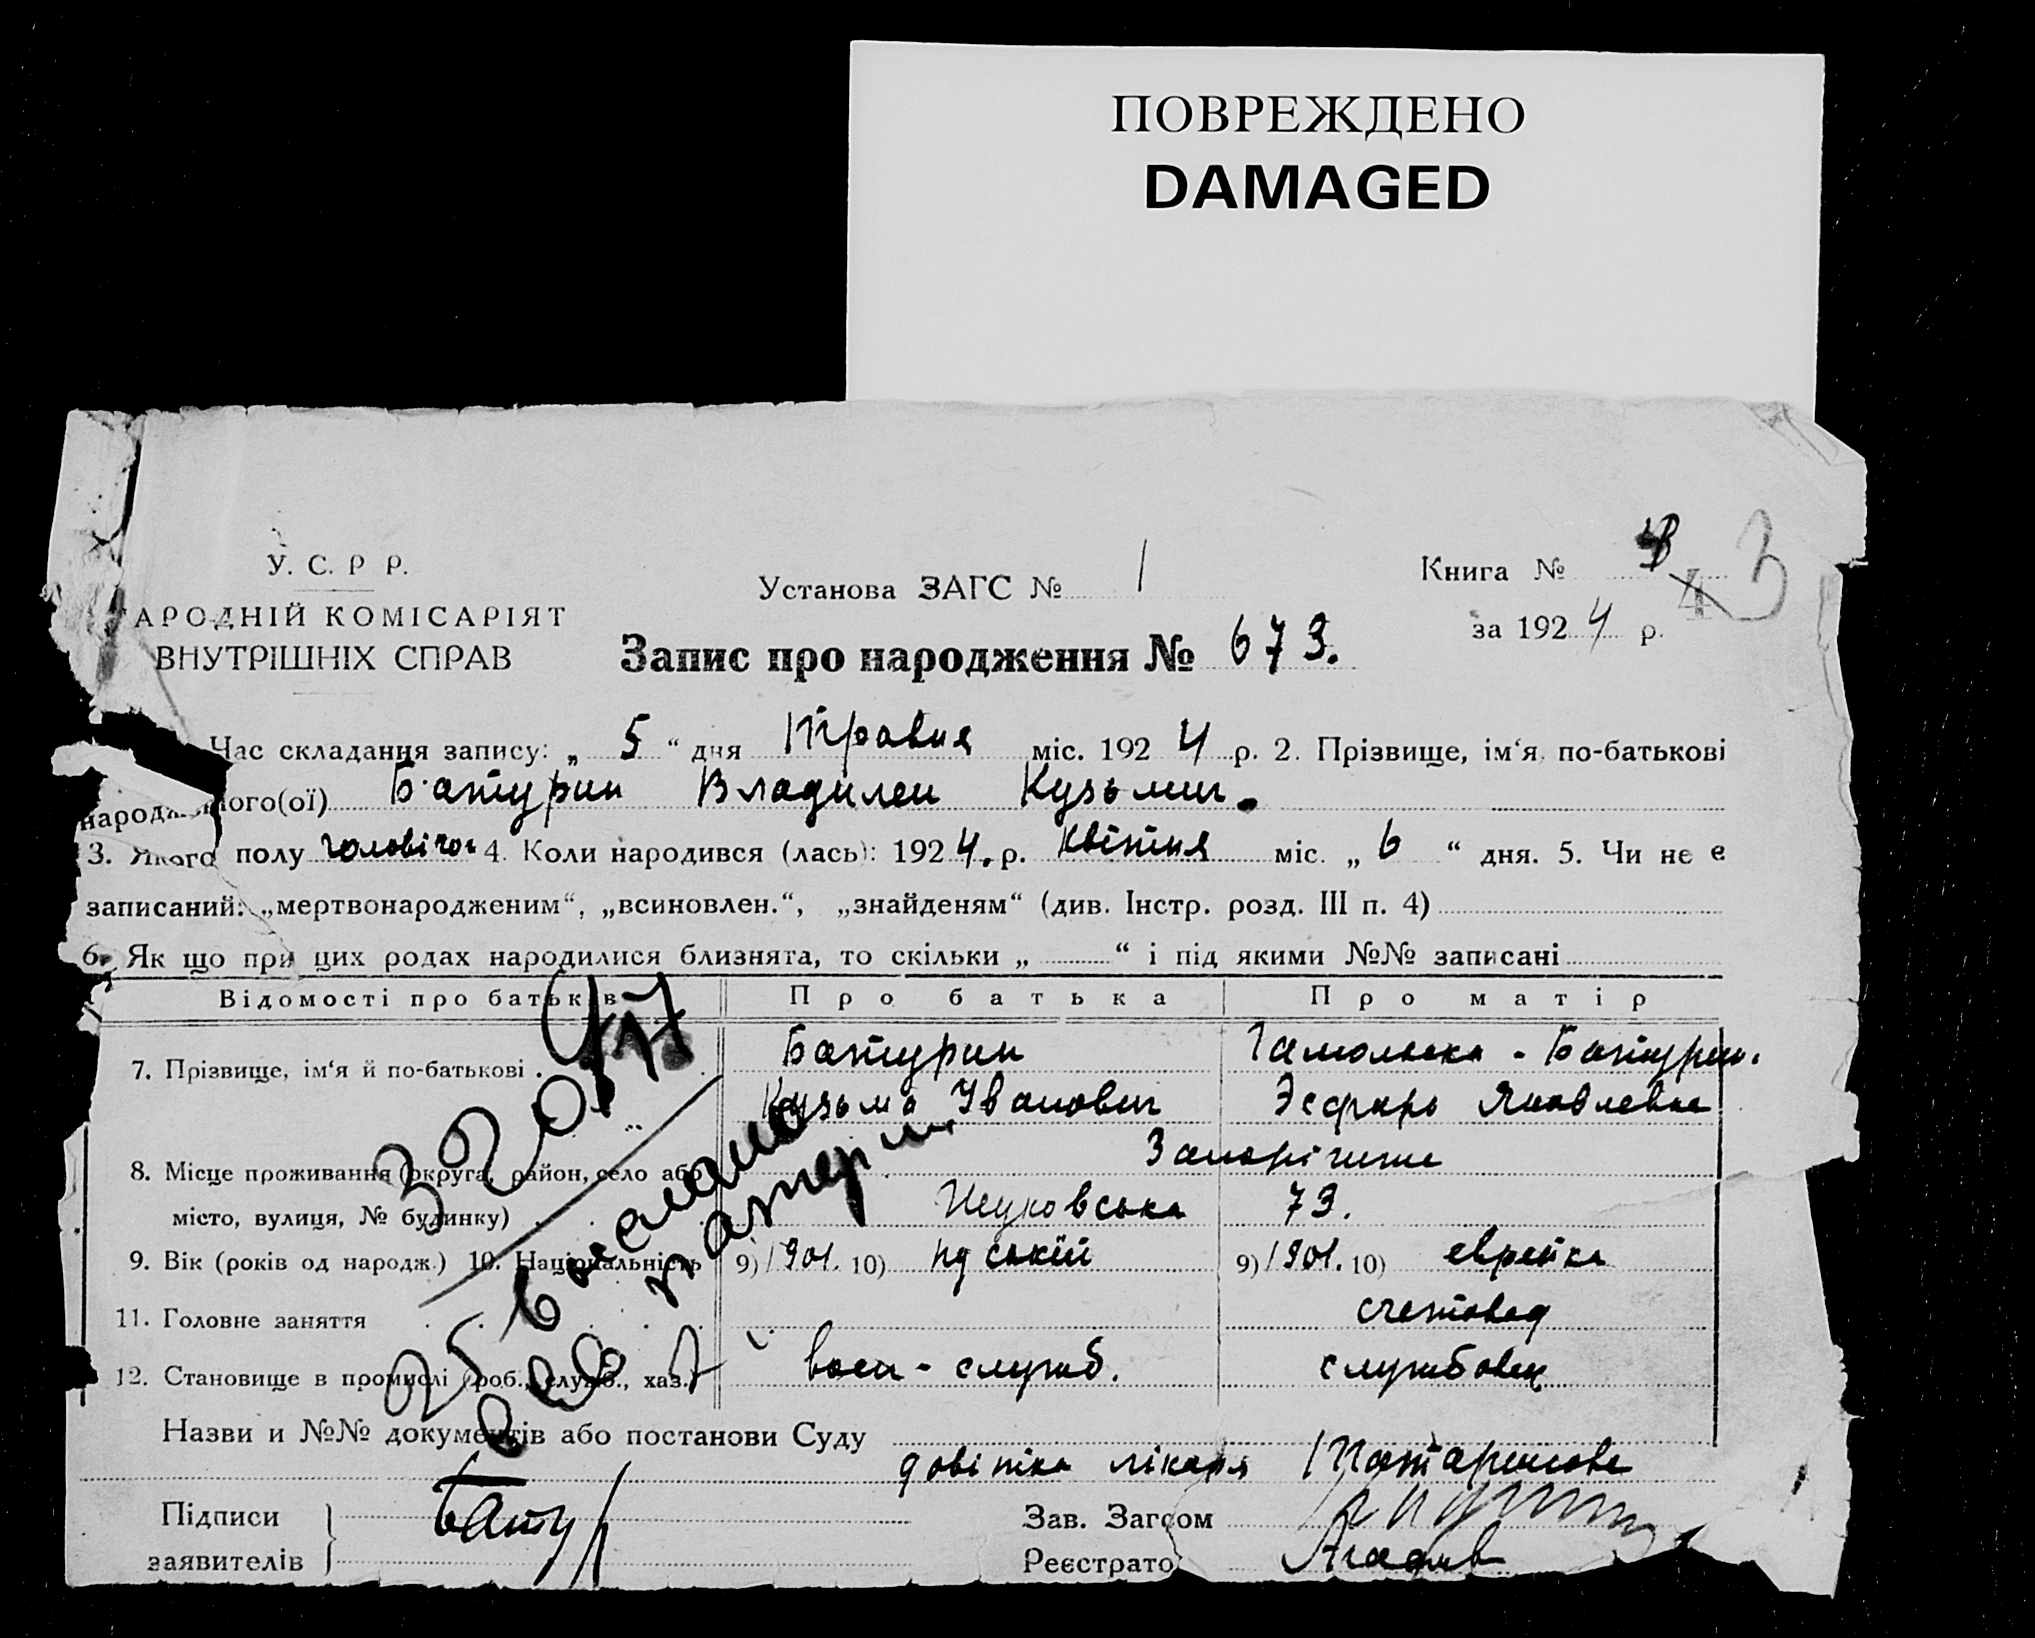 ПОВРЕЖДЕНО
DAMAGED
У. С. Р Р.
АРОДНІЙ КОМІСАРІЯТ
ВНУТРІШНІХ СПРАВ
Установа ЗАГС № 1
Книга № 4 3
за 1924 р.
Запис про народження № 673.
Час складання запису: „ 5 “ дня Травня міс. 1924 р. 2. Прізвище, ім‘я, по-батькові
народж ного(ої) Батурин Владилен Кузьмич.
3. Якого полу чоловічог 4. Коли народився (лась): 1924. р. Квітня міс. „ 6 “ дня. 5. Чи не є
записаний: „мертвонародженим“, „всиновлен.“, „знайденям“ (див. Інстр. розд. III п. 4)
6. Як що при цих родах народилися близнята, то скільки „ “ і під якими №№ записані
Відомості про батьків Про батька Про матір
7. Прізвище, ім‘я й по-батькові Батурин Кузьма Іванович
Батурин. Эсфирь Яковлевна
8. Місце проживання (округа, район, село або Запоріжже
місто, вулиця, № будинку) Жуковська 73.
9. Вік (років од народж.) 10. Національність 9) 1901. 10) 9) 1901. 10) еврейка
11. Головне заняття счетовод
12. Становище в промислі (роб., служб., хаз.) воен-служб. службовец
Назви и №№ документів або постанови Суду
довідка лікаря
Підписи заявителів Батур
Зав. Загсом
Реєстрато